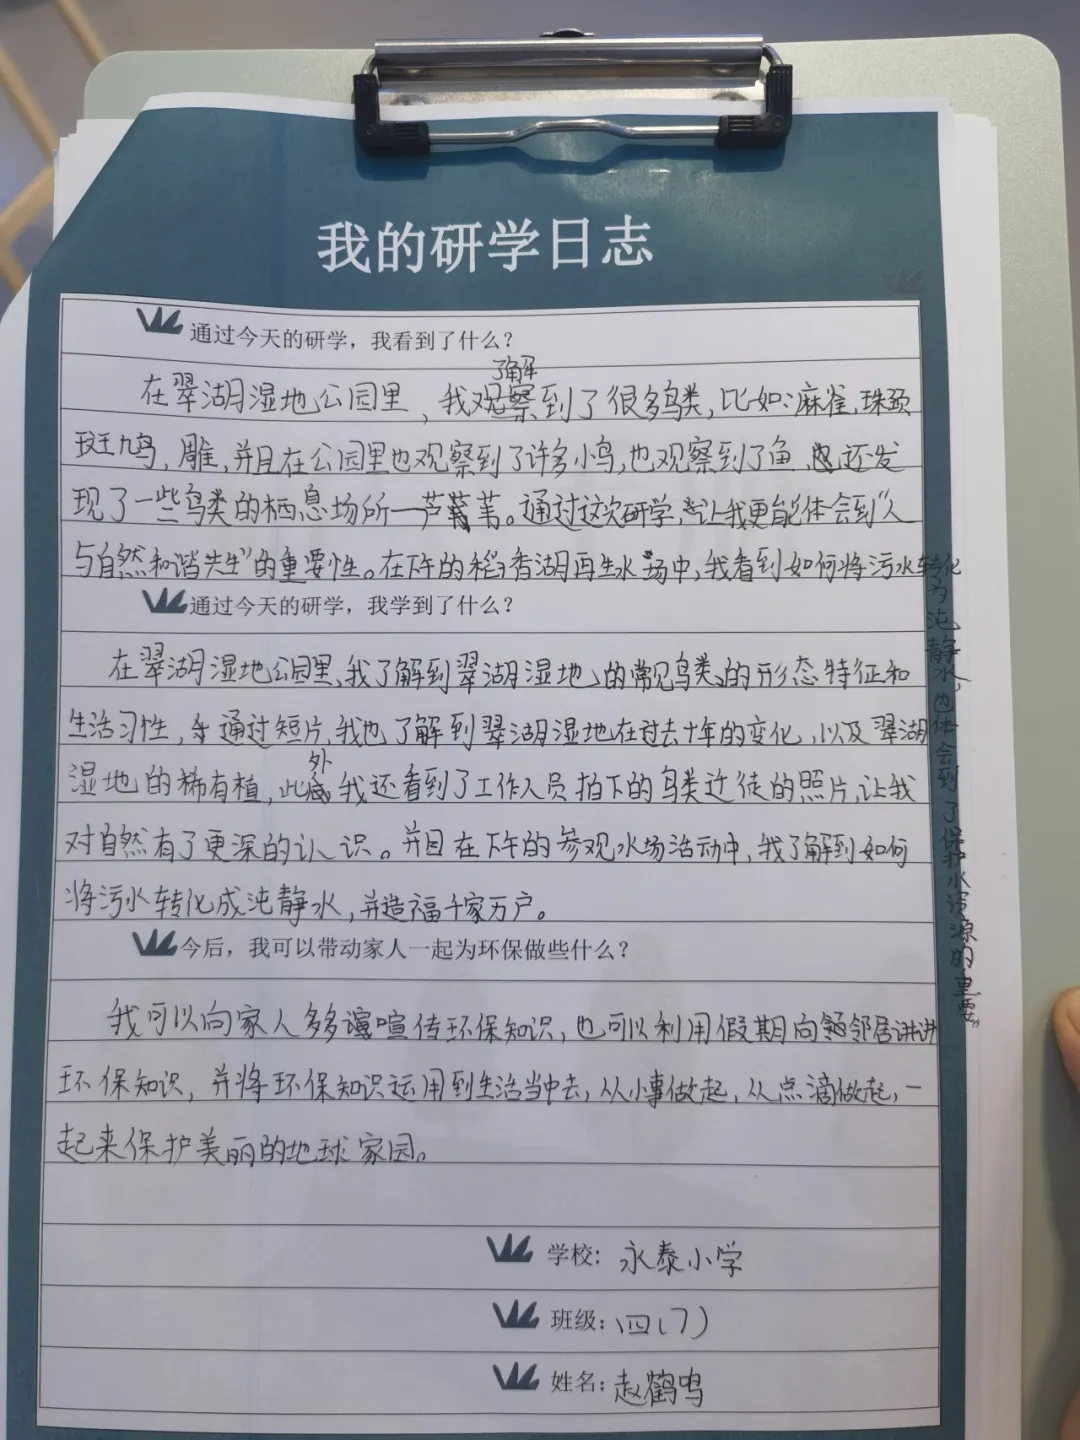 我的研学日志
通过今天的研学，我看到了什么？
了解
在翠湖湿地公园里，我观察到了很多鸟类，比如：麻雀，珠颈
斑鸠，雕，并且在公园里也观察到了许多小鸟，也观察到了鱼，还发
现了一些鸟类的栖息场所一芦苇。通过这次研学，让我更能体会到“人
与自然和谐共生”的重要性。在下午的稻香湖再生水场中，我看到如何将污水转化
为沌静水，也体会到了保护水资源的重要。
通过今天的研学，我学到了什么？
在翠湖湿地公园里，我了解到翠湖湿地的常见鸟类的形态特征和
生活习性，通过短片，我也了解到翠湖湿地在过去十年的变化，以及翠湖
外
湿地的稀有植，此我还看到了工作人员拍下的鸟类迁徒的照片，让我
对自然有了更深的认识。并且在下午的参观水场活动中，我了解到如何
将污水转化成沌静水，并造福千家万户。
今后，我可以带动家人一起为环保做些什么？
我可以向家人多多喧传环保知识，也可以利用假期向邻居讲讲
环保知识，并将环保知识运用到生活当中去，从小事做起，从点滴做起，一
起来保护美丽的地球家园。
学校：永泰小学
班级：四（7）
姓名：赵鹤鸣